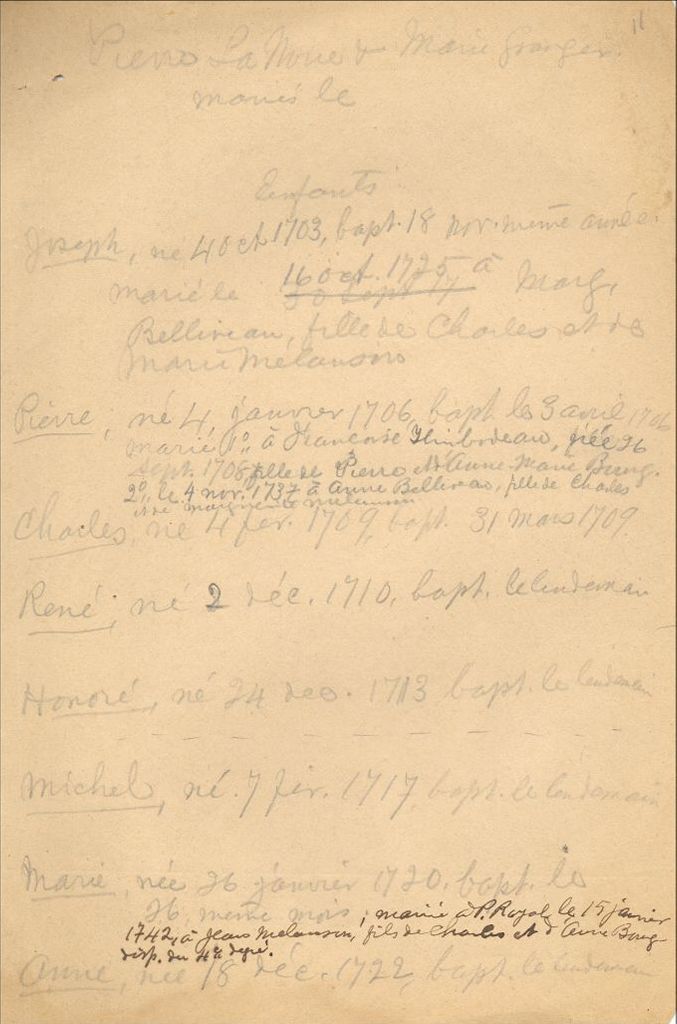 11
Pierre LaNoue & Marie Granger
mariés le
Enfants
Joseph, né 4 oct 1703, bapt. 18 nov. même année.
16 oct. 1725 à
marié le 30 sept 17 Marg.
Belliveau, fille de Charles et de
Marie Melanson
Pierre, né 4 janvier 1706, bapt. le 3 avril 1706
marié 1º. à Françoise Thibodeau, née 26
sept. 1708, fille de Pierre et d'Anne-Marie Bourg.
2º. le 4 nov. 1737 à Anne Belliveau, fille de Charles
et de Marguerite Melanson
Charles, né 4 fév. 1709, bapt. 31 mars 1709.
René, né 2 déc. 1710, bapt. le lendemain
Honoré, né 24 dec. 1713 bapt. le lendemain
Michel, né 7 fév. 1717, bapt. le lendemain
Marie, née 26 janvier 1720. bapt. le
26, même mois; mariée à P. Royal le 15 janvier
1742, à Jean Melanson, fils de Charles et d'Anne Bourg
disp. du 4e degré.
Anne, née 18 déc. 1722, bapt. le lendemain